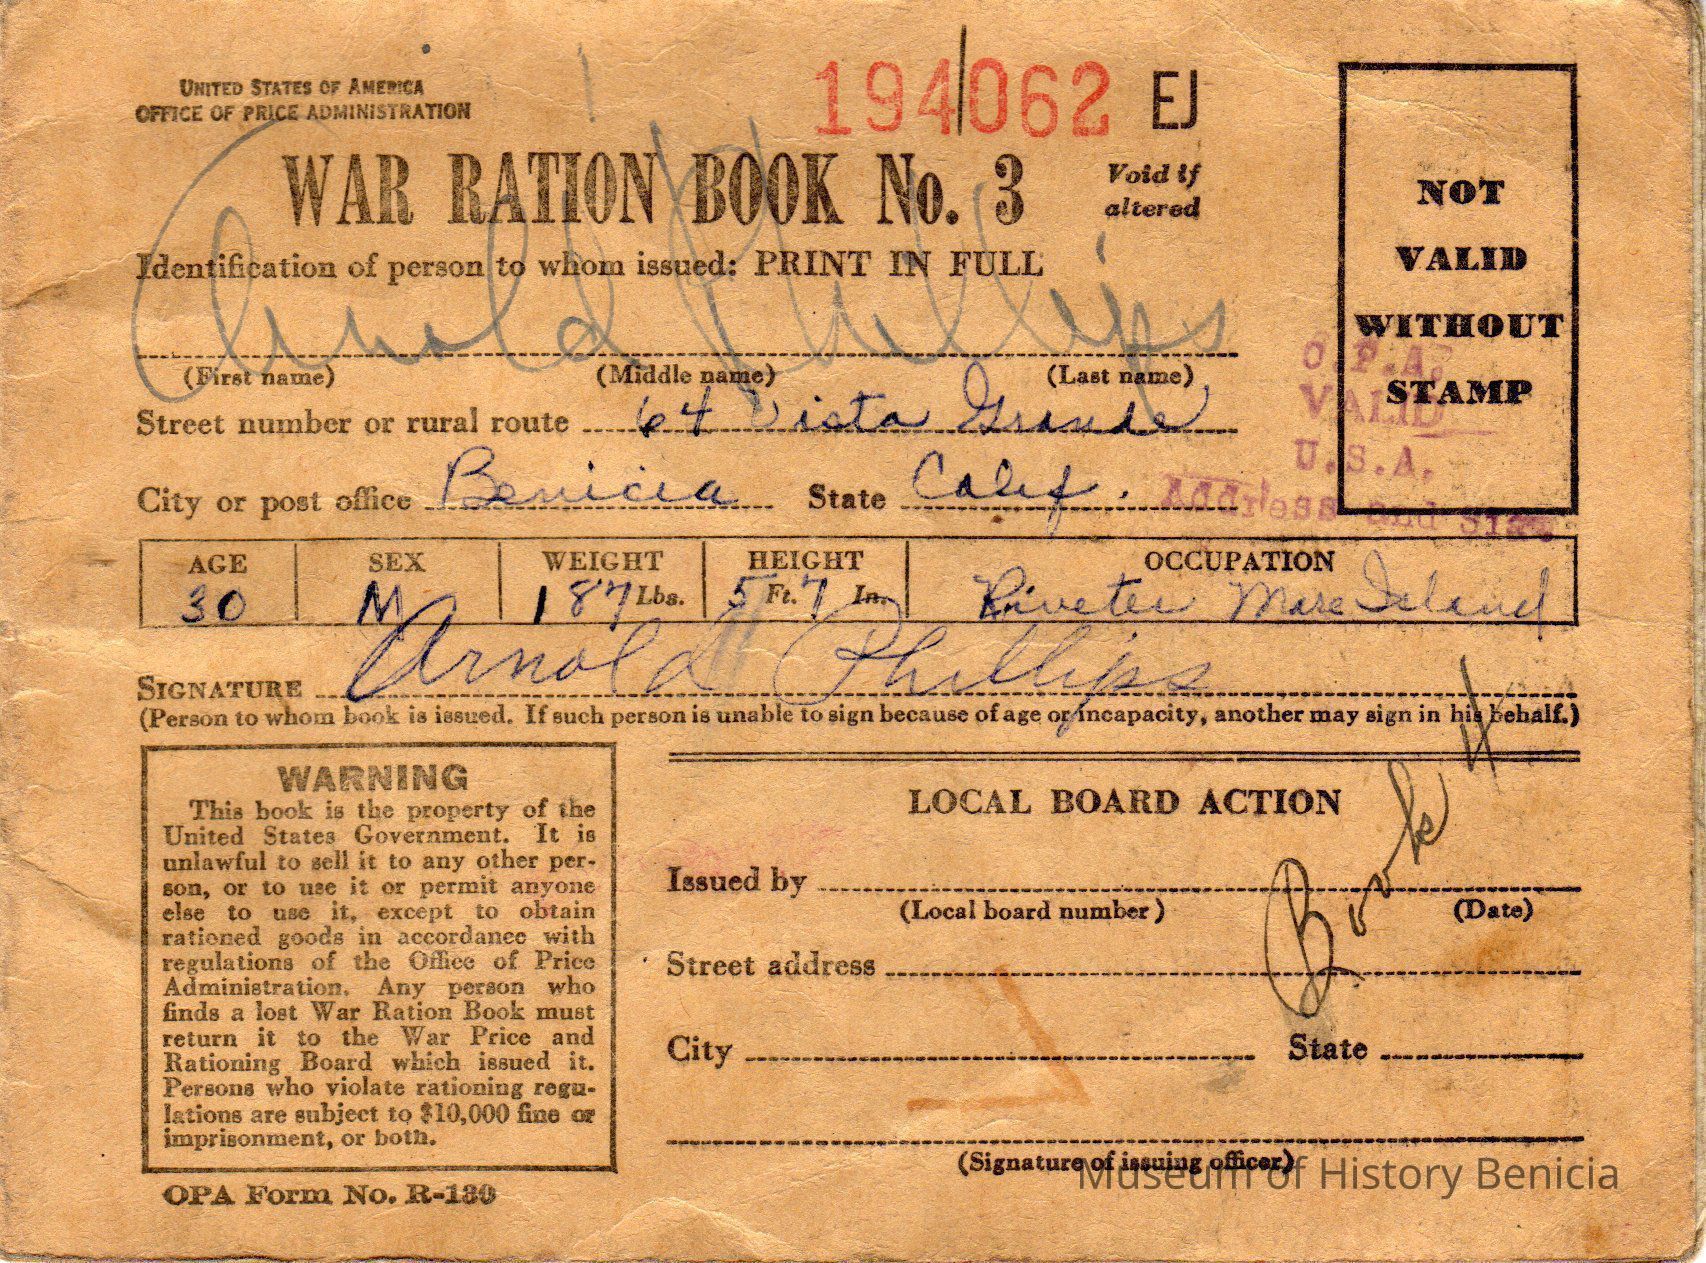 UNITED STATES OF AMERICA
OFFICE OF PRICE ADMINISTRATION
194062 EJ
WAR RATION BOOK No. 3
Void if
altered
Identification of person to whom issued: PRINT IN FULL
Arnold Phillips
(First name) (Middle name) (Last name)
Street number or rural route 64 Vista Grande
City or post office Benicia State Calif.
NOT
VALID
WITHOUT
STAMP
O.P.A.
VALID
U.S.A.
Address and
AGE SEX WEIGHT HEIGHT OCCUPATION
30 M 187 Lbs. 5 Ft. 7 In. Riveter Mare Island
SIGNATURE Arnold Phillips
(Person to whom book is issued. If such person is unable to sign because of age or incapacity, another may sign in his behalf.)
WARNING
This book is the property of the
United States Government. It is
unlawful to sell it to any other per-
son, or to use it or permit anyone
else to use it, except to obtain
rationed goods in accordance with
regulations of the Office of Price
Administration. Any person who
finds a lost War Ration Book must
return it to the War Price and
Rationing Board which issued it.
Persons who violate rationing regu-
lations are subject to $10,000 fine or
imprisonment, or both.
OPA Form No. R-130
LOCAL BOARD ACTION
Book 4
Issued by
(Local board number) (Date)
Street address
City State
(Signature of issuing officer)
Museum of History Benicia